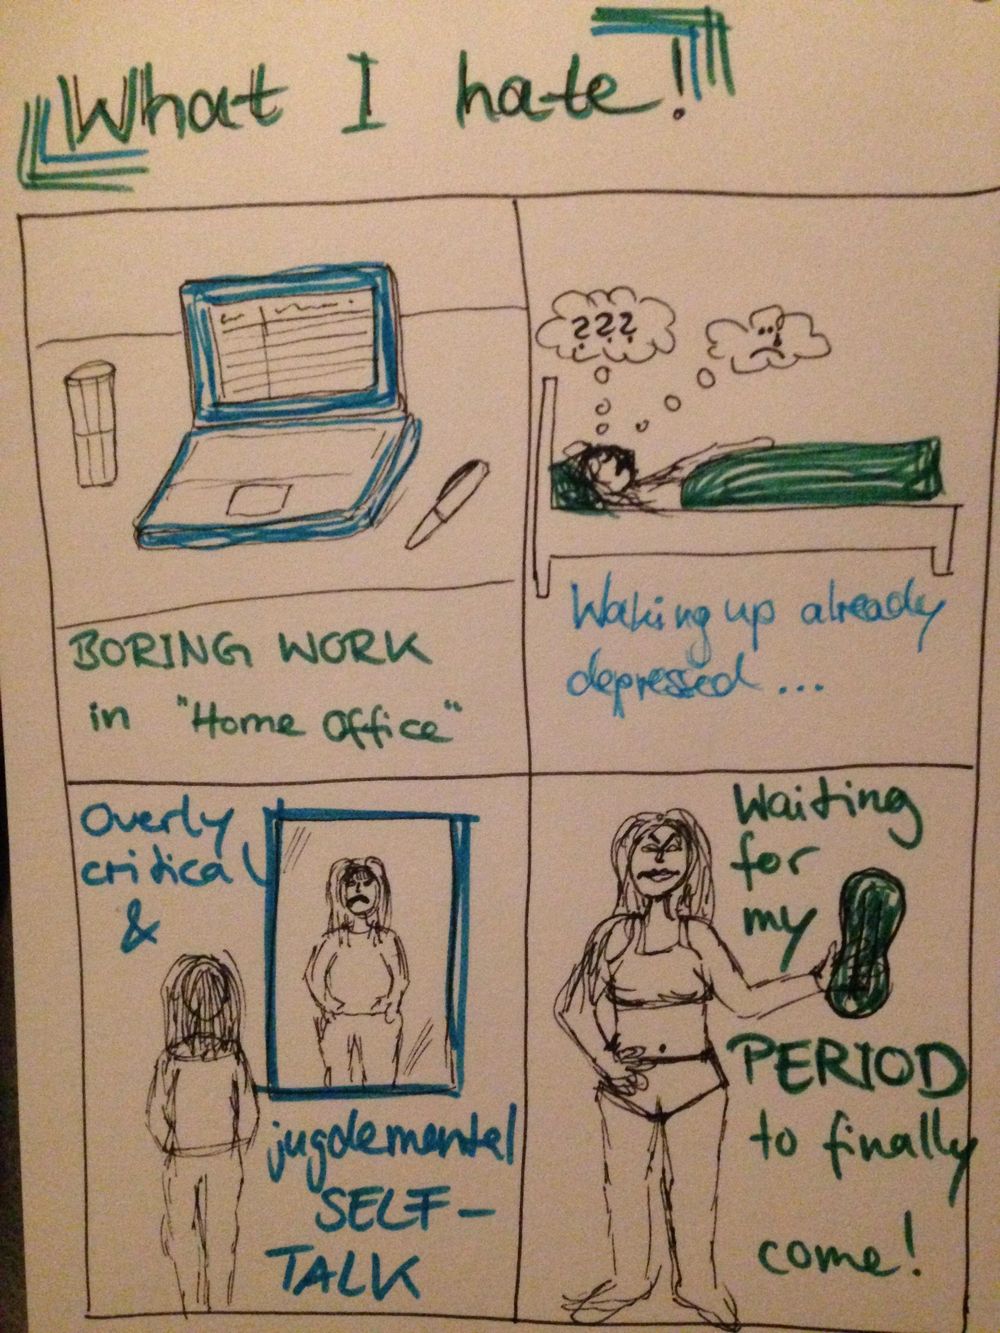 What I hate!
BORING WORK
in "Home Office"
???
Waking up already
depressed...
Overly
critical
&
jugdemental
SELF-
TALK
Waiting
for
my
PERIOD
to finally
come!